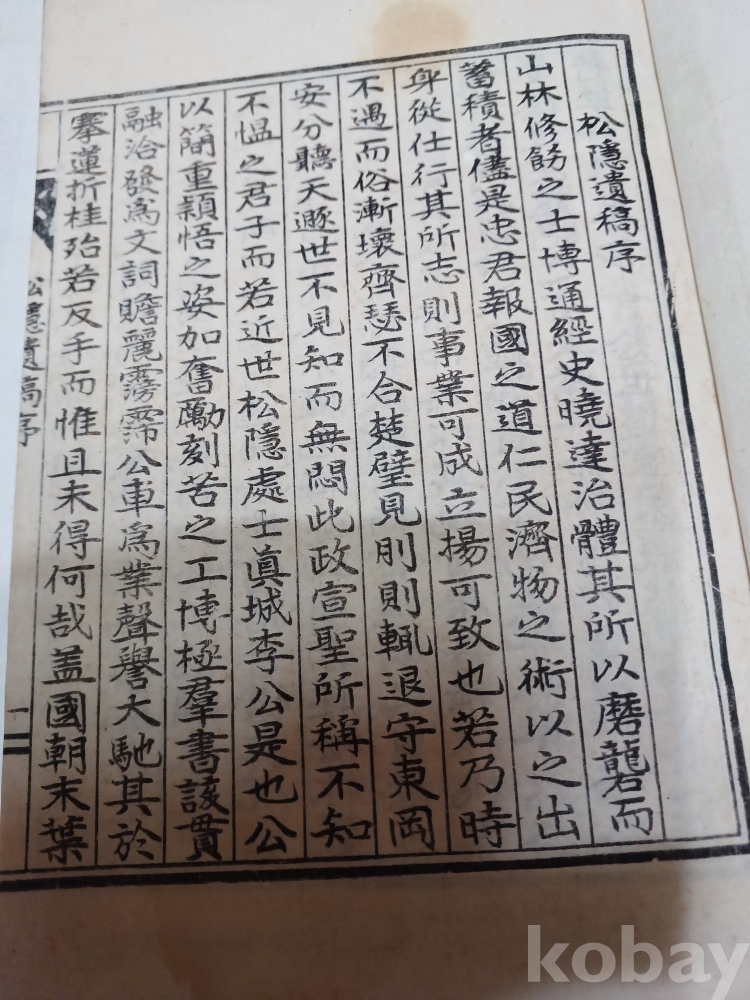 松隱遺稿序
山林修飭之士博通經史曉達治體其所以磨礱而
蓄積者儘是忠君報國之道仁民濟物之術以之出
身從仕行其所志則事業可成立揚可致也若乃時
不遇而俗漸壞齊瑟不合楚璧見刖則輒退守東岡
安分聽天遯世不見知而無悶此政宣聖所稱不知
不慍之君子而若近世松隱處士眞城李公是也公
以簡重穎悟之姿加奮勵刻苦之工博極羣書該貫
融洽發爲文詞贍麗霶霈公車爲業聲譽大馳其於
搴蓮折桂殆若反手而惟且未得何哉盖國朝末葉
松隱遺稿序
一
kobay